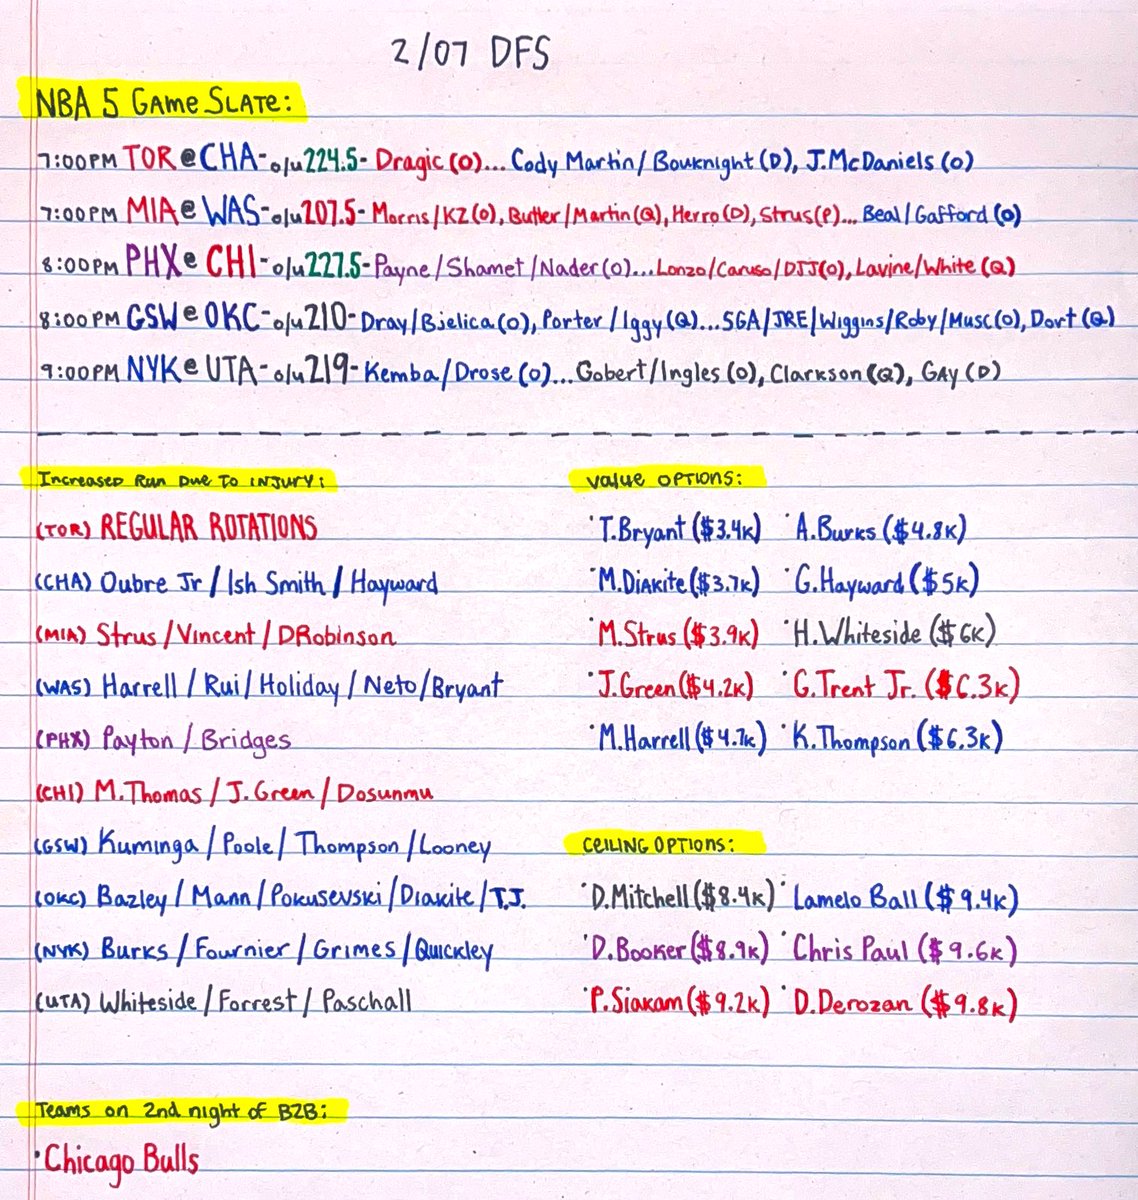 2/07 DFS
NBA 5 GAME SLATE:
7:00PM TOR@CHA-o/u224.5-Dragic(O)... Cody Martin/Bouknight(D), J.McDaniels(O)
7:00PM MIA@WAS-o/u207.5-Morris/KZ(O), Butler/Martin(Q), Herro(D), Strus(P)... Beal/Gafford(O)
8:00PM PHX@CHI-o/u227.5-Payne/Shamet/Nader(O)...Lonzo/Caruso/DJJ(O), Lavine/White(Q)
8:00PM GSW@OKC-o/u210-Dray/Bjelica(O), Porter/Iggy(Q)...SGA/JRE/Wiggins/Roby/Musc(O), Dort(Q)
9:00PM NYK@UTA-o/u219-Kemba/Drose(O)...Gobert/Ingles(O), Clarkson(Q), GAY(D)
Increased Run Due To INJURY:
(TOR) REGULAR ROTATIONS
(CHA) Oubre Jr/Ish Smith/Hayward
(MIA) Strus/Vincent/DRobinson
(WAS) Harrell/Rui/Holiday/Neto/Bryant
(PHX) Payton/Bridges
(CHI) M.Thomas/J.Green/Dosunmu
(GSW) Kuminga/Poole/Thompson/Looney
(OKC) Bazley/Mann/Pokusevski/Diakite/T.J.
(NYK) Burks/Fournier/Grimes/Quickley
(UTA) Whiteside/Forrest/Paschall
Value OPTIONS:
·T.Bryant($3.4K) ·A.Burks($4.8K)
·M.Diakite($3.7K) ·G.Hayward($5K)
·M.Strus($3.9K) ·H.Whiteside($6K)
·J.Green($4.2K) ·G.Trent Jr.($6.3K)
·M.Harrell($4.7K) ·K.Thompson($6.3K)
CEILING OPTIONS:
·D.Mitchell($8.4K) ·Lamelo Ball($9.4K)
·D.Booker($8.9K) ·Chris Paul($9.6K)
·P.Siakam($9.2K) ·D.Derozan($9.8K)
Teams on 2nd night of B2B:
·Chicago Bulls